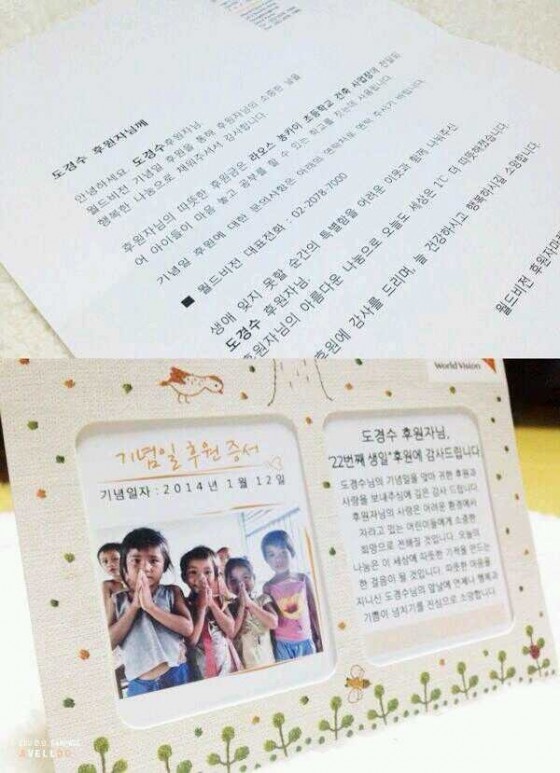 도경수 후원자님께
안녕하세요. 도경수후원자님.
월드비전 기념일 후원을 통해 후원자님의 소중한 날을
행복한 나눔으로 채워주셔서 감사합니다.
후원자님의 따뜻한 후원금은 라오스 농카이 초등학교 건축 사업장에 전달되
어 아이들이 마음 놓고 공부를 할 수 있는 학교를 짓는데 사용됩니다.
기념일 후원에 대한 문의사항은 아래의 연락처로 연락 주시기 바랍니다.
■ 월드비전 대표전화 : 02-2078-7000
생애 잊지 못할 순간의 특별함을 어려운 이웃과 함께 나눠주신
도경수 후원자님
후원자님의 아름다운 나눔으로 오늘도 세상은 1℃ 더 따뜻해졌습니다.
후원에 감사를 드리며, 늘 건강하시고 행복하시길 소망합니다.
월드비전
World Vision
기념일 후원 증서
기념일자 : 2014년 1월 12일
도경수 후원자님,
"22번째 생일"후원에 감사드립니다
도경수님의 기념일을 맞아 귀한 후원과
사랑을 보내주심에 깊은 감사 드립니다.
후원자님의 사랑은 어려운 환경에서
자라고 있는 어린이들에게 소중한
희망으로 전해질 것입니다. 오늘의
나눔은 이 세상에 따뜻한 기적을 만드는
한 걸음이 될 것입니다. 따뜻한 마음을
지니신 도경수님의 앞날에 언제나 행복과
기쁨이 넘치기를 진심으로 소망합니다.